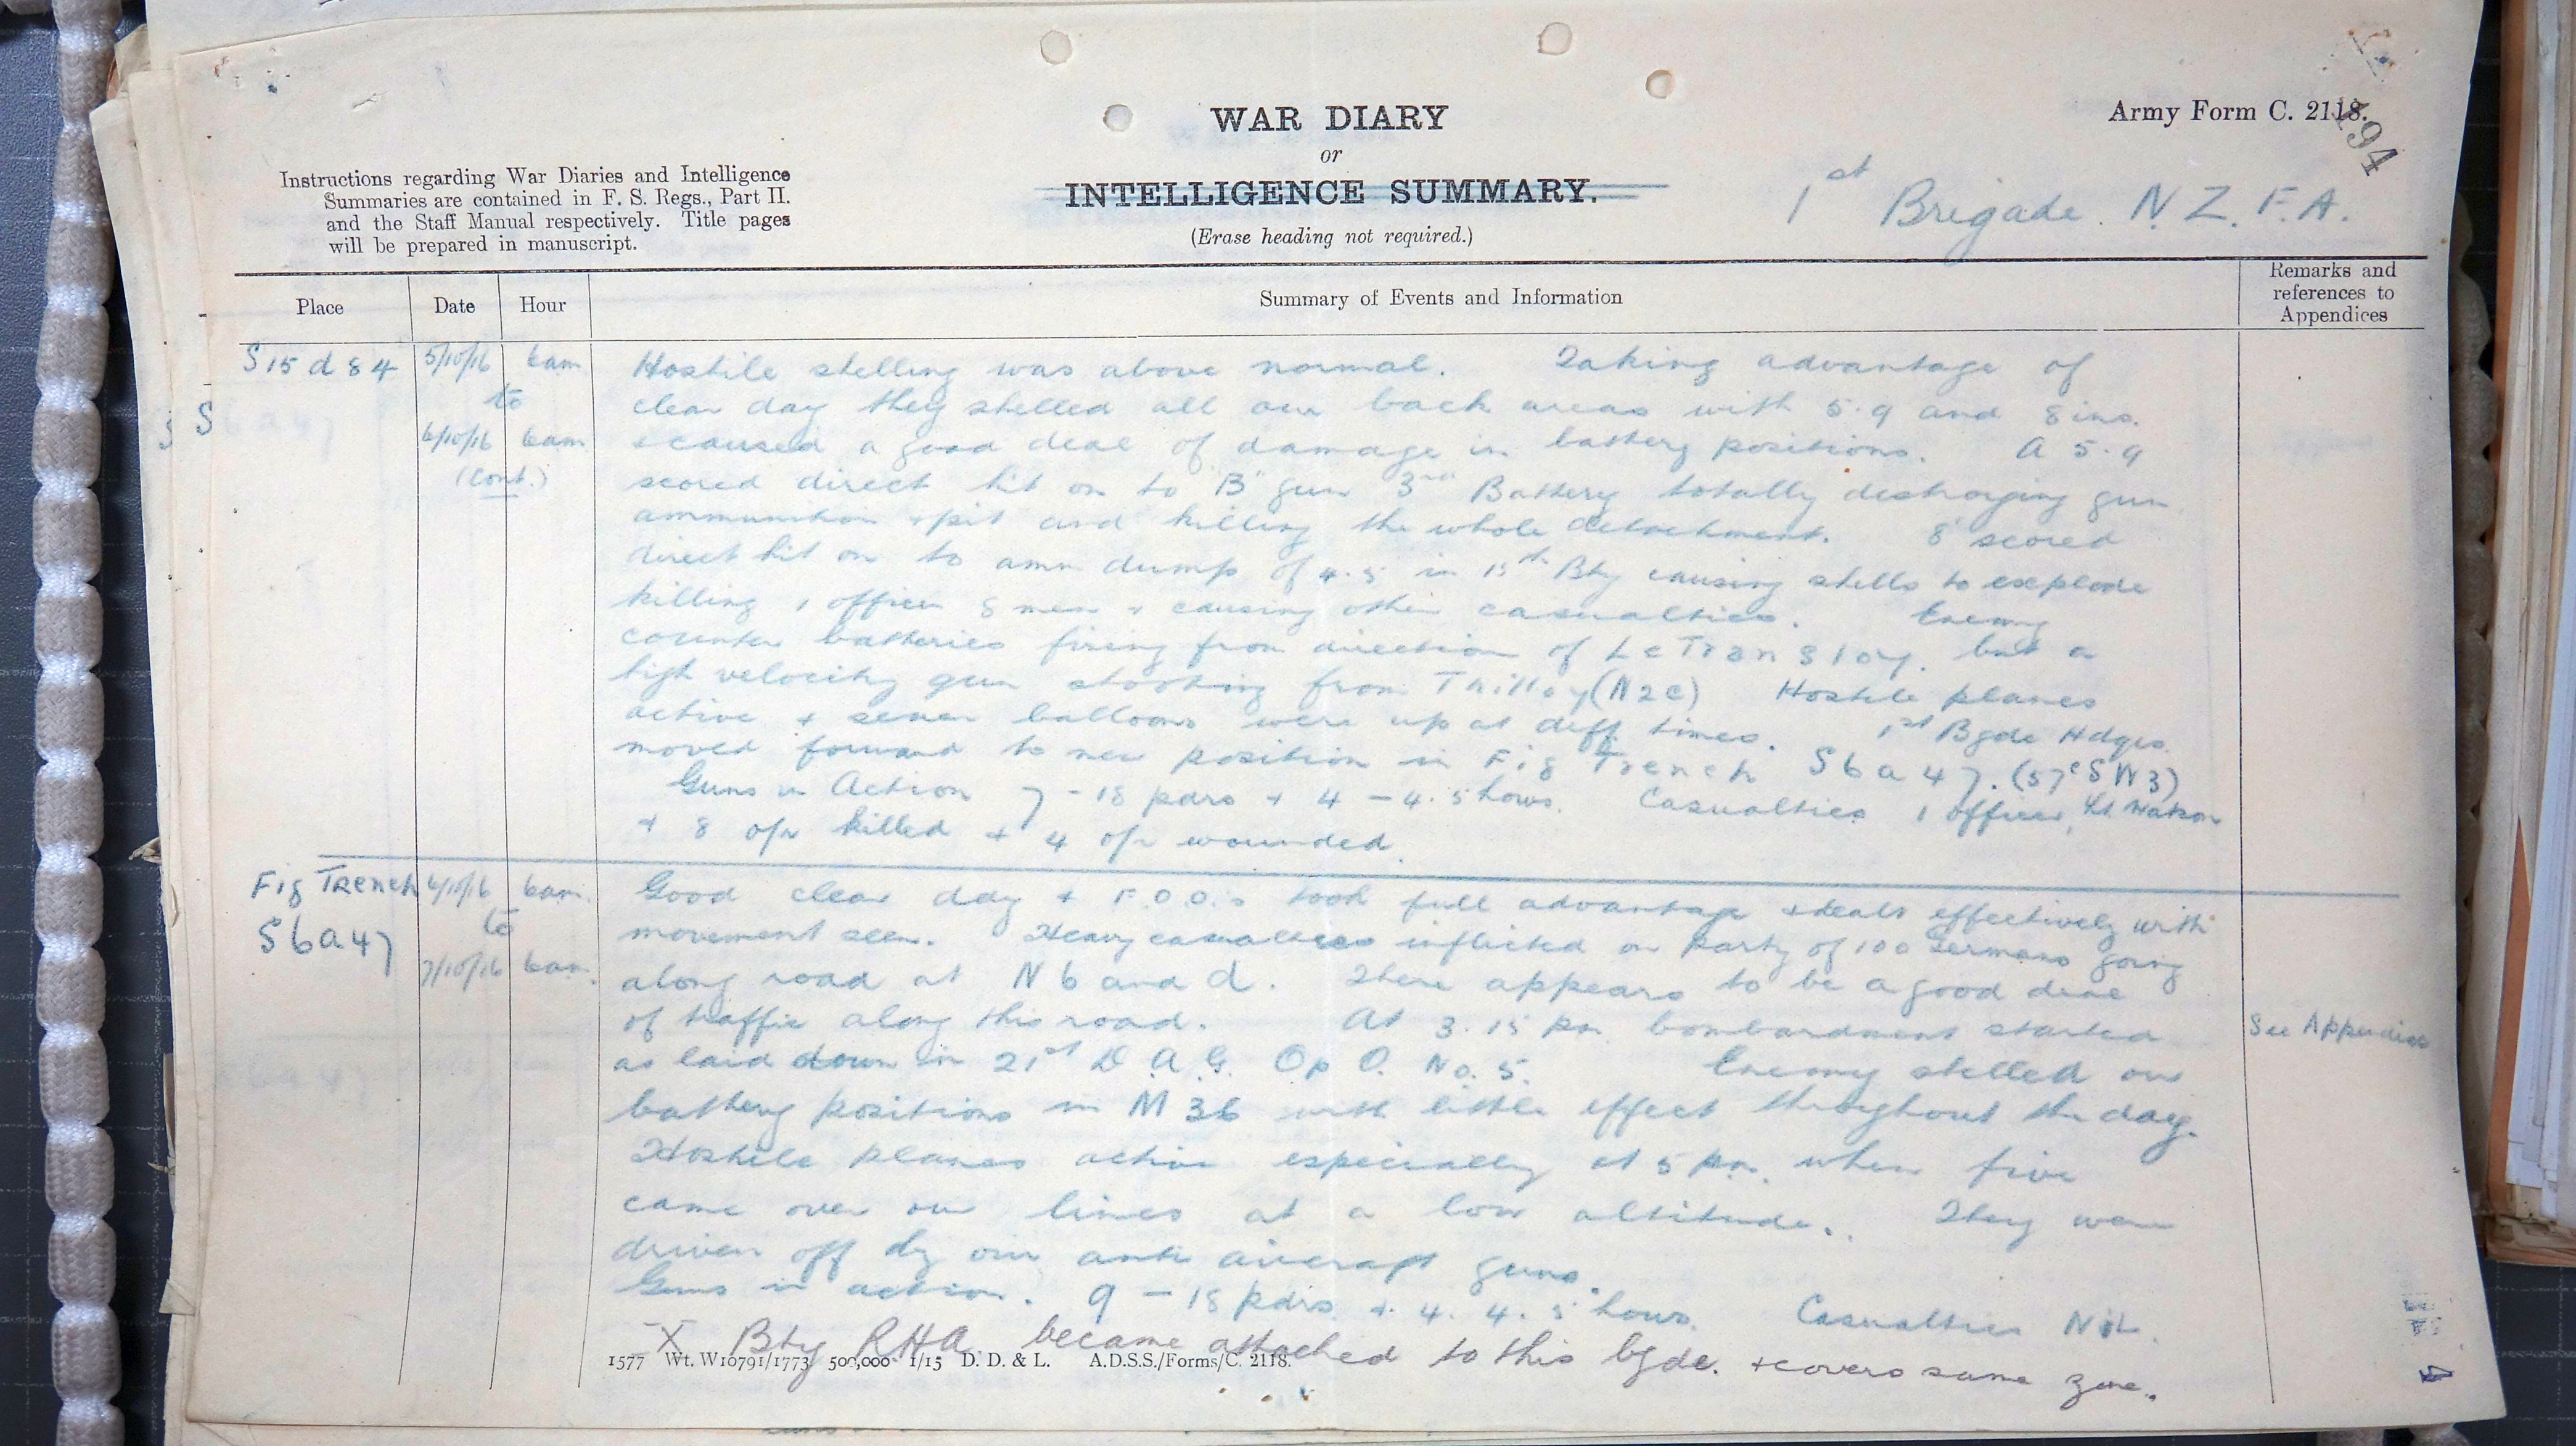 WAR DIARY
or
INTELLIGENCE SUMMARY.
(Erase heading not required.)
Army Form C. 2118.
194
Instructions regarding War Diaries and Intelligence
Summaries are contained in F. S. Regs., Part II.
and the Staff Manual respectively. Title pages
will be prepared in manuscript.
1st Brigade. N.Z.F.A.
Place
Date
Hour
Summary of Events and Information
Remarks and
references to
Appendices
S15 d 84
5/10/16 6am
to
6/10/16 6am
(Cont.)
Hostile shelling was above normal. Taking advantage of
clear day they shelled all our back areas with 5.9 and 8 ins.
& caused a good deal of damage in battery positions. A 5.9
scored direct hit on to "B" gun 3rd Battery totally destroying gun
ammunition & pit and killing the whole detachment. 8" scored
direct hit on to amn dump of 4.5 in 15th Bty causing shells to explode
killing 1 officer 8 men & causing other casualties. Enemy
counter batteries firing from direction of Le Transloy. but a
high velocity gun shooting from Thilloy (N2c) Hostile planes
active & seven balloons were up at diff times. 1st Bgde Hdqrs.
moved forward to new position in Fig Trench S6a47. (57c SW3)
Guns in Action 7 - 18 pdrs + 4 - 4.5 hows. Casualties 1 officer, Lt
+ 8 o/r killed + 4 o/r wounded.
Fig Trench
S6a47
6/10/16 6am.
to
7/10/16 6am.
Good clear day + F.O.O.s took full advantage & dealt effectively with
movement seen. Heavy casualties inflicted on party of 100 Germans going
along road at N6 and d. There appears to be a good deal
of traffic along this road. At 3.15 pm bombardment started
as laid down in 21st D.A.G. Op O. No. 5. Enemy shelled our
battery positions in M36 with little effect throughout the day.
Hostile planes active especially at 5 pm. when five
came over our lines at a low altitude. They were
driven off by our anti aircraft guns.
Guns in action. 9 - 18 pdrs + 4. 4.5 hows. Casualties Nil.
X Bty RHA became attached to this bgde. + covers same zone.
See Appendix
1577 Wt. W10791/1773 500,000 1/15 D. D. & L. A.D.S.S./Forms/C. 2118.